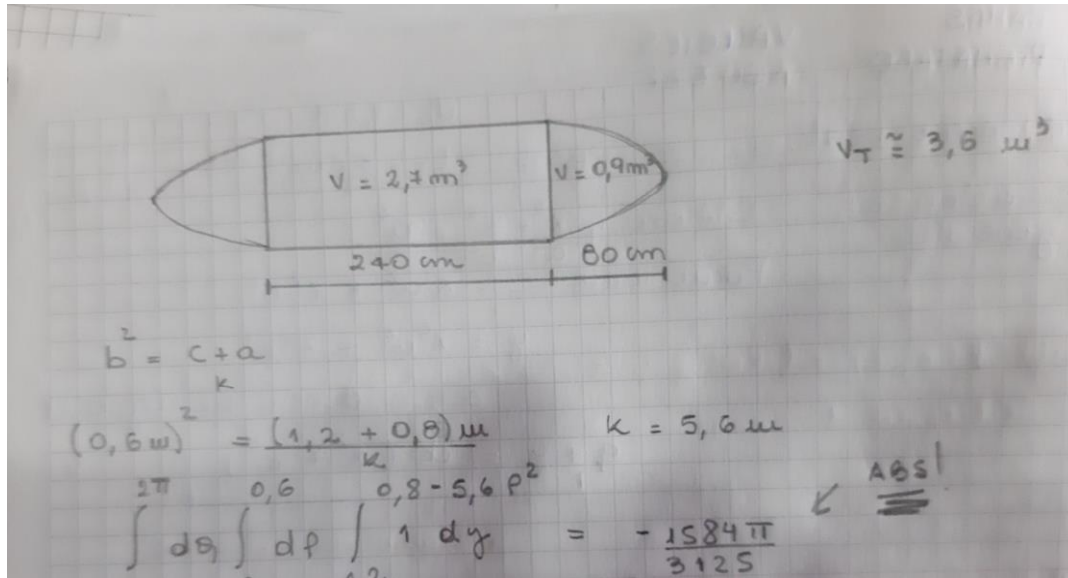 V = 2,7 m³
V = 0,9 m³
V_T ≅ 3,6 m³
240 cm
80 cm
b² = c + a
k
(0,6 m)² = (1,2 + 0,8) m
k
k = 5,6 m
ABS!
2π 0,6 0,8 - 5,6 ρ²
∫ dθ ∫ dρ ∫ 1 dy = - 1584 π
3125